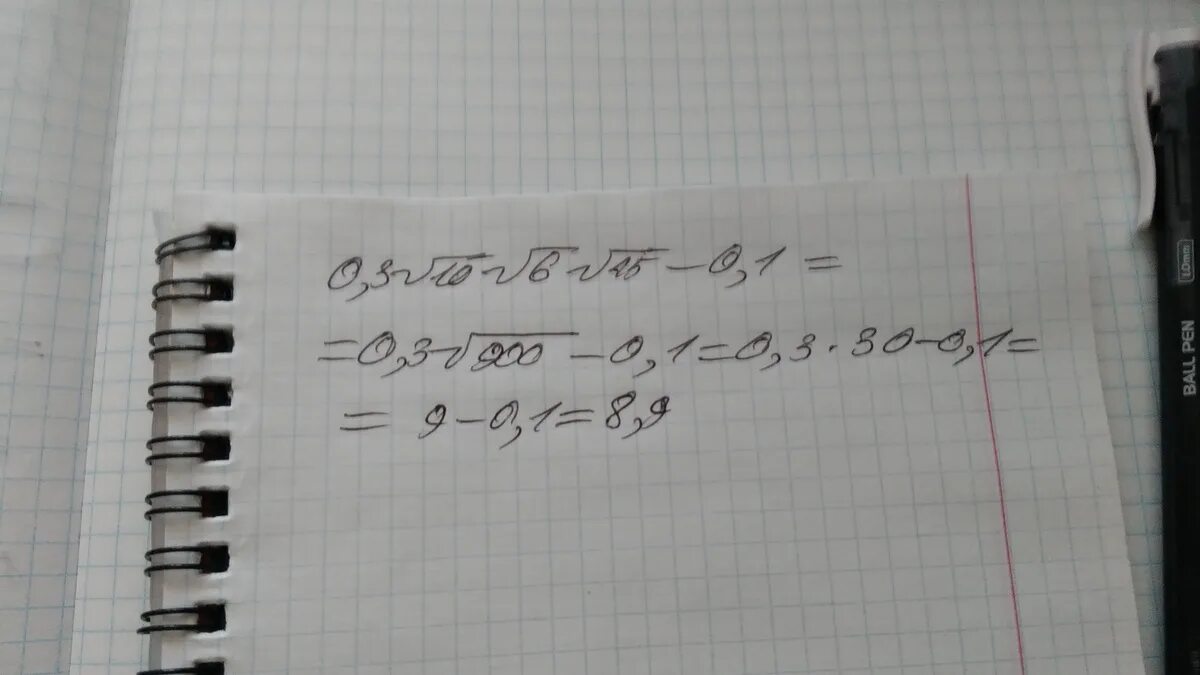 0,3√10 √6 √25 – 0,1 =
= 0,3√900 – 0,1 = 0,3 · 30 – 0,1 =
= 9 – 0,1 = 8,9
BALL PEN 1.0mm